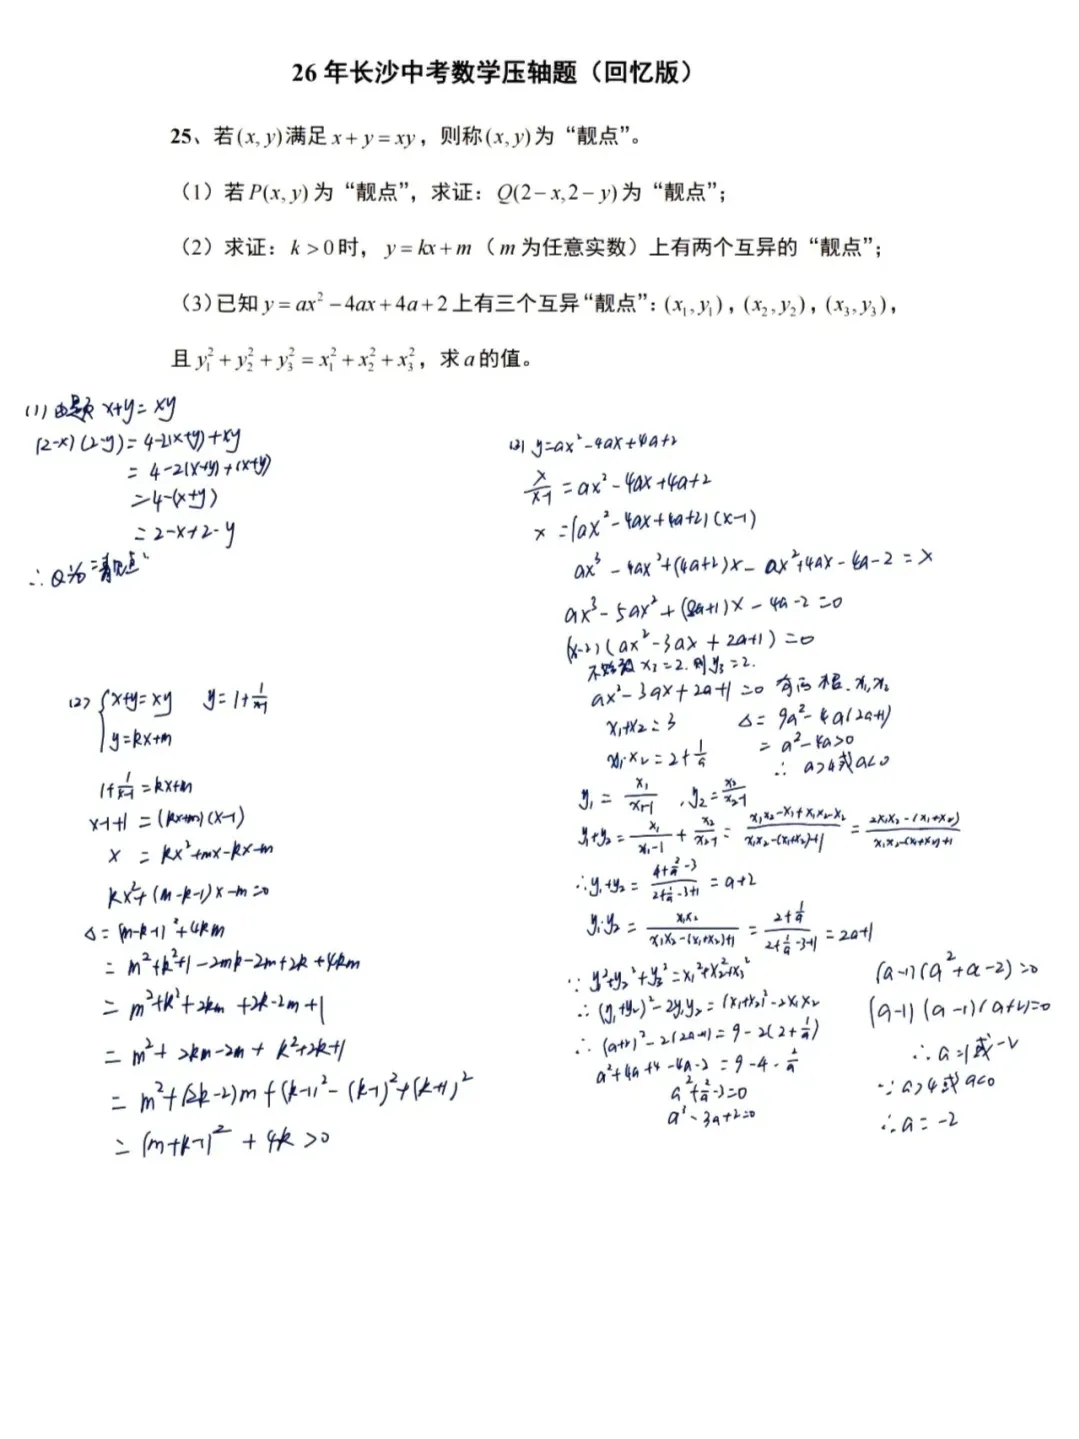 26 年长沙中考数学压轴题（回忆版）
25、若(x, y)满足 x + y = xy，则称(x, y)为“靓点”。
（1）若 P(x, y) 为“靓点”，求证：Q(2 − x, 2 − y) 为“靓点”；
（2）求证：k > 0 时，y = kx + m（m 为任意实数）上有两个互异的“靓点”；
（3）已知 y = ax² − 4ax + 4a + 2 上有三个互异“靓点”：(x₁, y₁)，(x₂, y₂)，(x₃, y₃)，
且 y₁² + y₂² + y₃² = x₁² + x₂² + x₃²，求 a 的值。
(1) 由题 x+y= xy
(2-x)(2-y)= 4-2(x+y)+xy
= 4-2(x+y)+(x+y)
=4-(x+y)
=2-x+2-y
∴Q为“靓点”
(2) {x+y=xy y=1+1/(x-1)
y=kx+m
1+1/(x-1)=kx+m
x-1+1 =(kx+m)(x-1)
x = kx²+mx-kx-m
kx²+(m-k-1)x-m=0
Δ= (m-k-1)²+4km
= m²+k²+1-2mk-2m+2k+4km
= m²+k²+2km+2k-2m+1
= m²+2km-2m+k²+2k+1
= m²+(2k-2)m+(k-1)²-(k-1)²+(k+1)²
= (m+k-1)²+4k>0
(3) y=ax²-4ax+4a+2
x/(x-1) =ax²-4ax+4a+2
x =(ax²-4ax+4a+2)(x-1)
ax³-4ax²+(4a+2)x-ax²+4ax-4a-2=x
ax³-5ax²+(8a+1)x-4a-2=0
(x-2)(ax²-3ax+2a+1)=0
不妨设 x₃=2.则y₃=2.
ax²-3ax+2a+1=0 有两根.x₁,x₂
x₁+x₂=3 Δ= 9a²-4a(2a+1)
x₁·x₂=2+1/a = a²-4a>0
∴ a>4或a<0
y₁= x₁/(x₁-1) ,y₂= x₂/(x₂-1)
y₁+y₂= x₁/(x₁-1) + x₂/(x₂-1) = (x₁x₂-x₁+x₁x₂-x₂)/(x₁x₂-(x₁+x₂)+1) = (2x₁x₂-(x₁+x₂))/(x₁x₂-(x₁+x₂)+1)
∴y₁+y₂= (4+2/a-3)/(2+1/a-3+1) =a+2
y₁·y₂= x₁x₂/(x₁x₂-(x₁+x₂)+1) = (2+1/a)/(2+1/a-3+1) =2a+1
∵ y₁²+y₂²+y₃²=x₁²+x₂²+x₃²
∴ (y₁+y₂)²-2y₁y₂=(x₁+x₂)²-2x₁x₂
∴ (a+2)²-2(2a+1)=9-2(2+1/a)
a²+4a+4-4a-2=9-4-2/a
a²+2/a-3=0
a³-3a+2=0
(a-1)(a²+a-2)=0
(a-1)(a-1)(a+2)=0
∴a=1或-2
∵a>4或a<0
∴a=-2